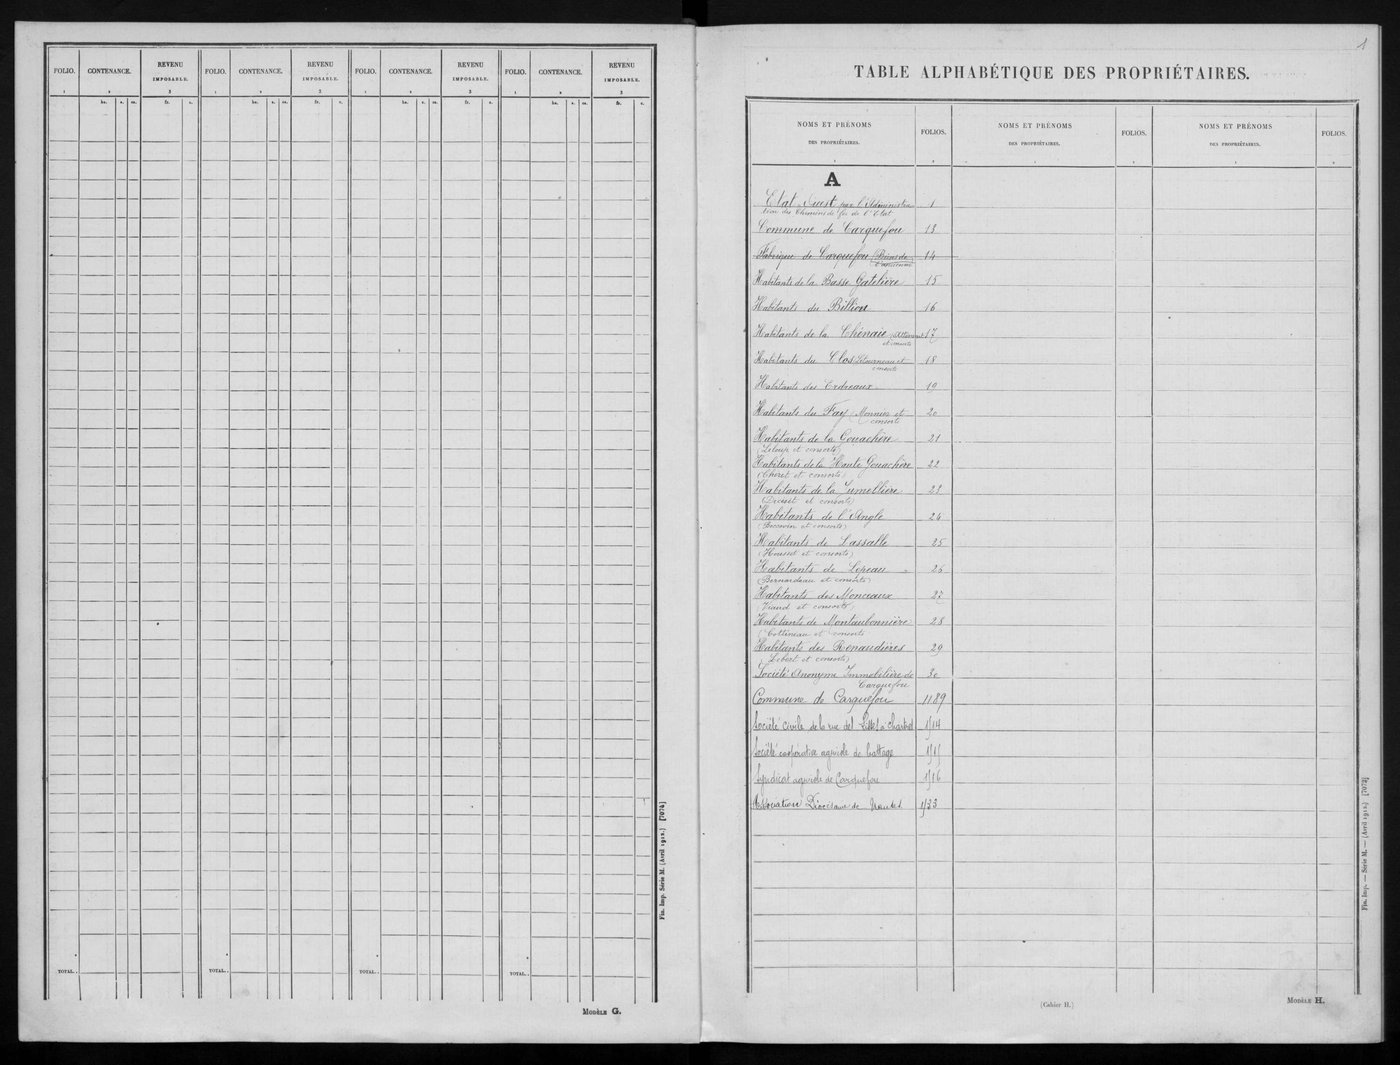 FOLIO. CONTENANCE. REVENU IMPOSABLE. FOLIO. CONTENANCE. REVENU IMPOSABLE. FOLIO. CONTENANCE. REVENU IMPOSABLE. FOLIO. CONTENANCE. REVENU IMPOSABLE.
1 2 3 1 2 3 1 2 3 1 2 3
ha. a. ca. fr. c. ha. a. ca. fr. c. ha. a. ca. fr. c. ha. a. ca. fr. c.
TOTAL. . TOTAL. . TOTAL. . TOTAL. .
Fin. Imp. Série M. (Avril 1912.) [7074]
MODÈLE G.
1
TABLE ALPHABÉTIQUE DES PROPRIÉTAIRES.
NOMS ET PRÉNOMS DES PROPRIÉTAIRES. FOLIOS. NOMS ET PRÉNOMS DES PROPRIÉTAIRES. FOLIOS. NOMS ET PRÉNOMS DES PROPRIÉTAIRES. FOLIOS.
1 2 1 2 1 2
A
Etat Ouest par l'Administra 1
tion des Chemins de fer de l'Etat
Commune de Carquefou 13
Fabrique de Carquefou 14
Habitants de la Basse Gatelière 15
Habitants du Billion 16
Habitants de la Chênaie 17
et consorts
Habitants du Clos Letourneau et 18
consorts
Habitants des Erdreaux 19
Habitants du Fay Monnier et 20
consorts
Habitants de la Gouachère 21
(Leloup et consorts)
Habitants de la Haute Gouachère 22
(Choret et consorts)
Habitants de la Jumellière 23
et consorts)
Habitants de l'Angle 24
et consorts)
Habitants de Lassalle 25
(Housset et consorts)
Habitants de Lépeau 26
(Bernardeau et consorts)
Habitants des Monceaux 27
(Viaud et consorts)
Habitants de Montaubonnière 28
(Cottineau et consorts
Habitants des Renaudières 29
(Lebert et consorts)
Société Anonyme Immobilière de 30
Carquefou
Commune de Carquefou 1189
Société civile de la rue
Société coopérative agricole de battage
Syndicat agricole de Carquefou
Association Diocésaine de Nantes
Fin. Imp. — Série M. — (Avril 1912.) [7073]
(Cahier H.)
MODÈLE H.